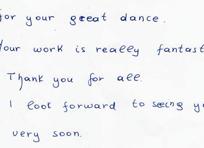 for your great dance.
Your work is really fantast
Thank you for all.
I loot forward to seeing y
very soon.